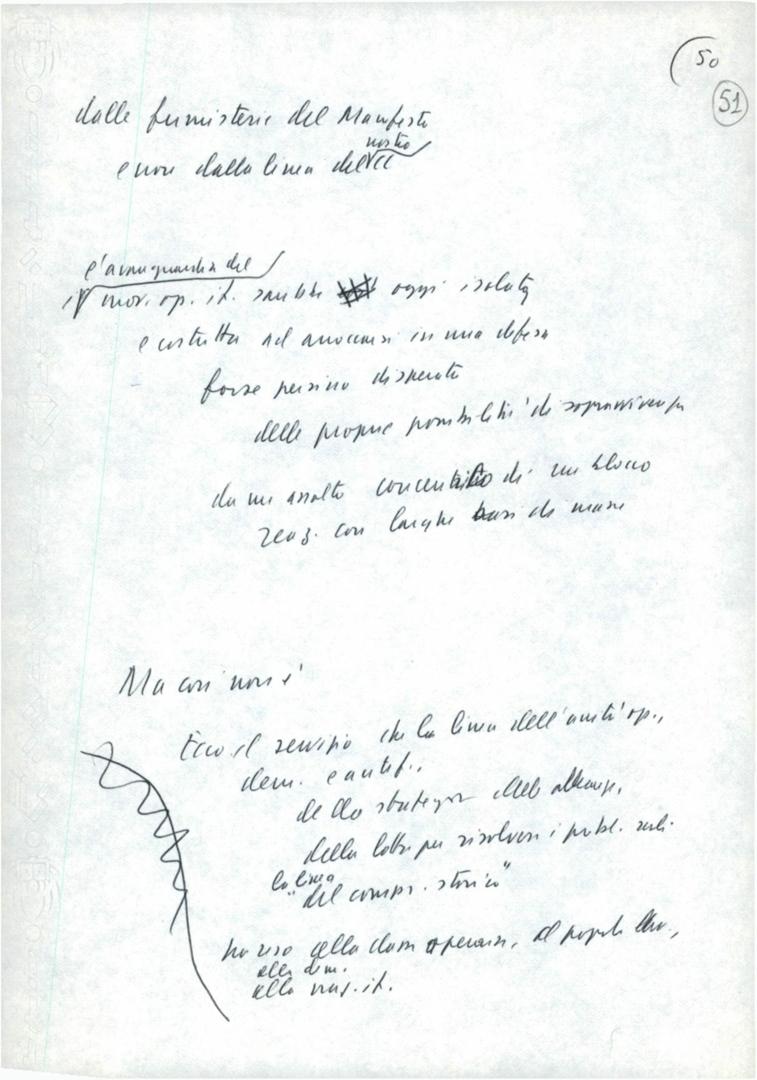 50
51
dalle fumisterie del Manifesto
nostro
e non dalla linea del CC
l'avanguardia del
mov. op. it. sarebbe oggi isolata
e costretta ad arroccarsi in una difesa
forse persino disperata
delle proprie possibilità di sopravvivenza
da un assalto concentrico di un blocco
reaz. con larghe basi di massa
Ma così non è
Ecco il servizio che la linea dell'unità op.,
dem. e antif.,
della strategia delle alleanze,
della lotta per risolvere i probl. reali
la linea
"del compr. storico"
ha reso alla classe operaia, al popolo
alla dem.
alla naz. it.